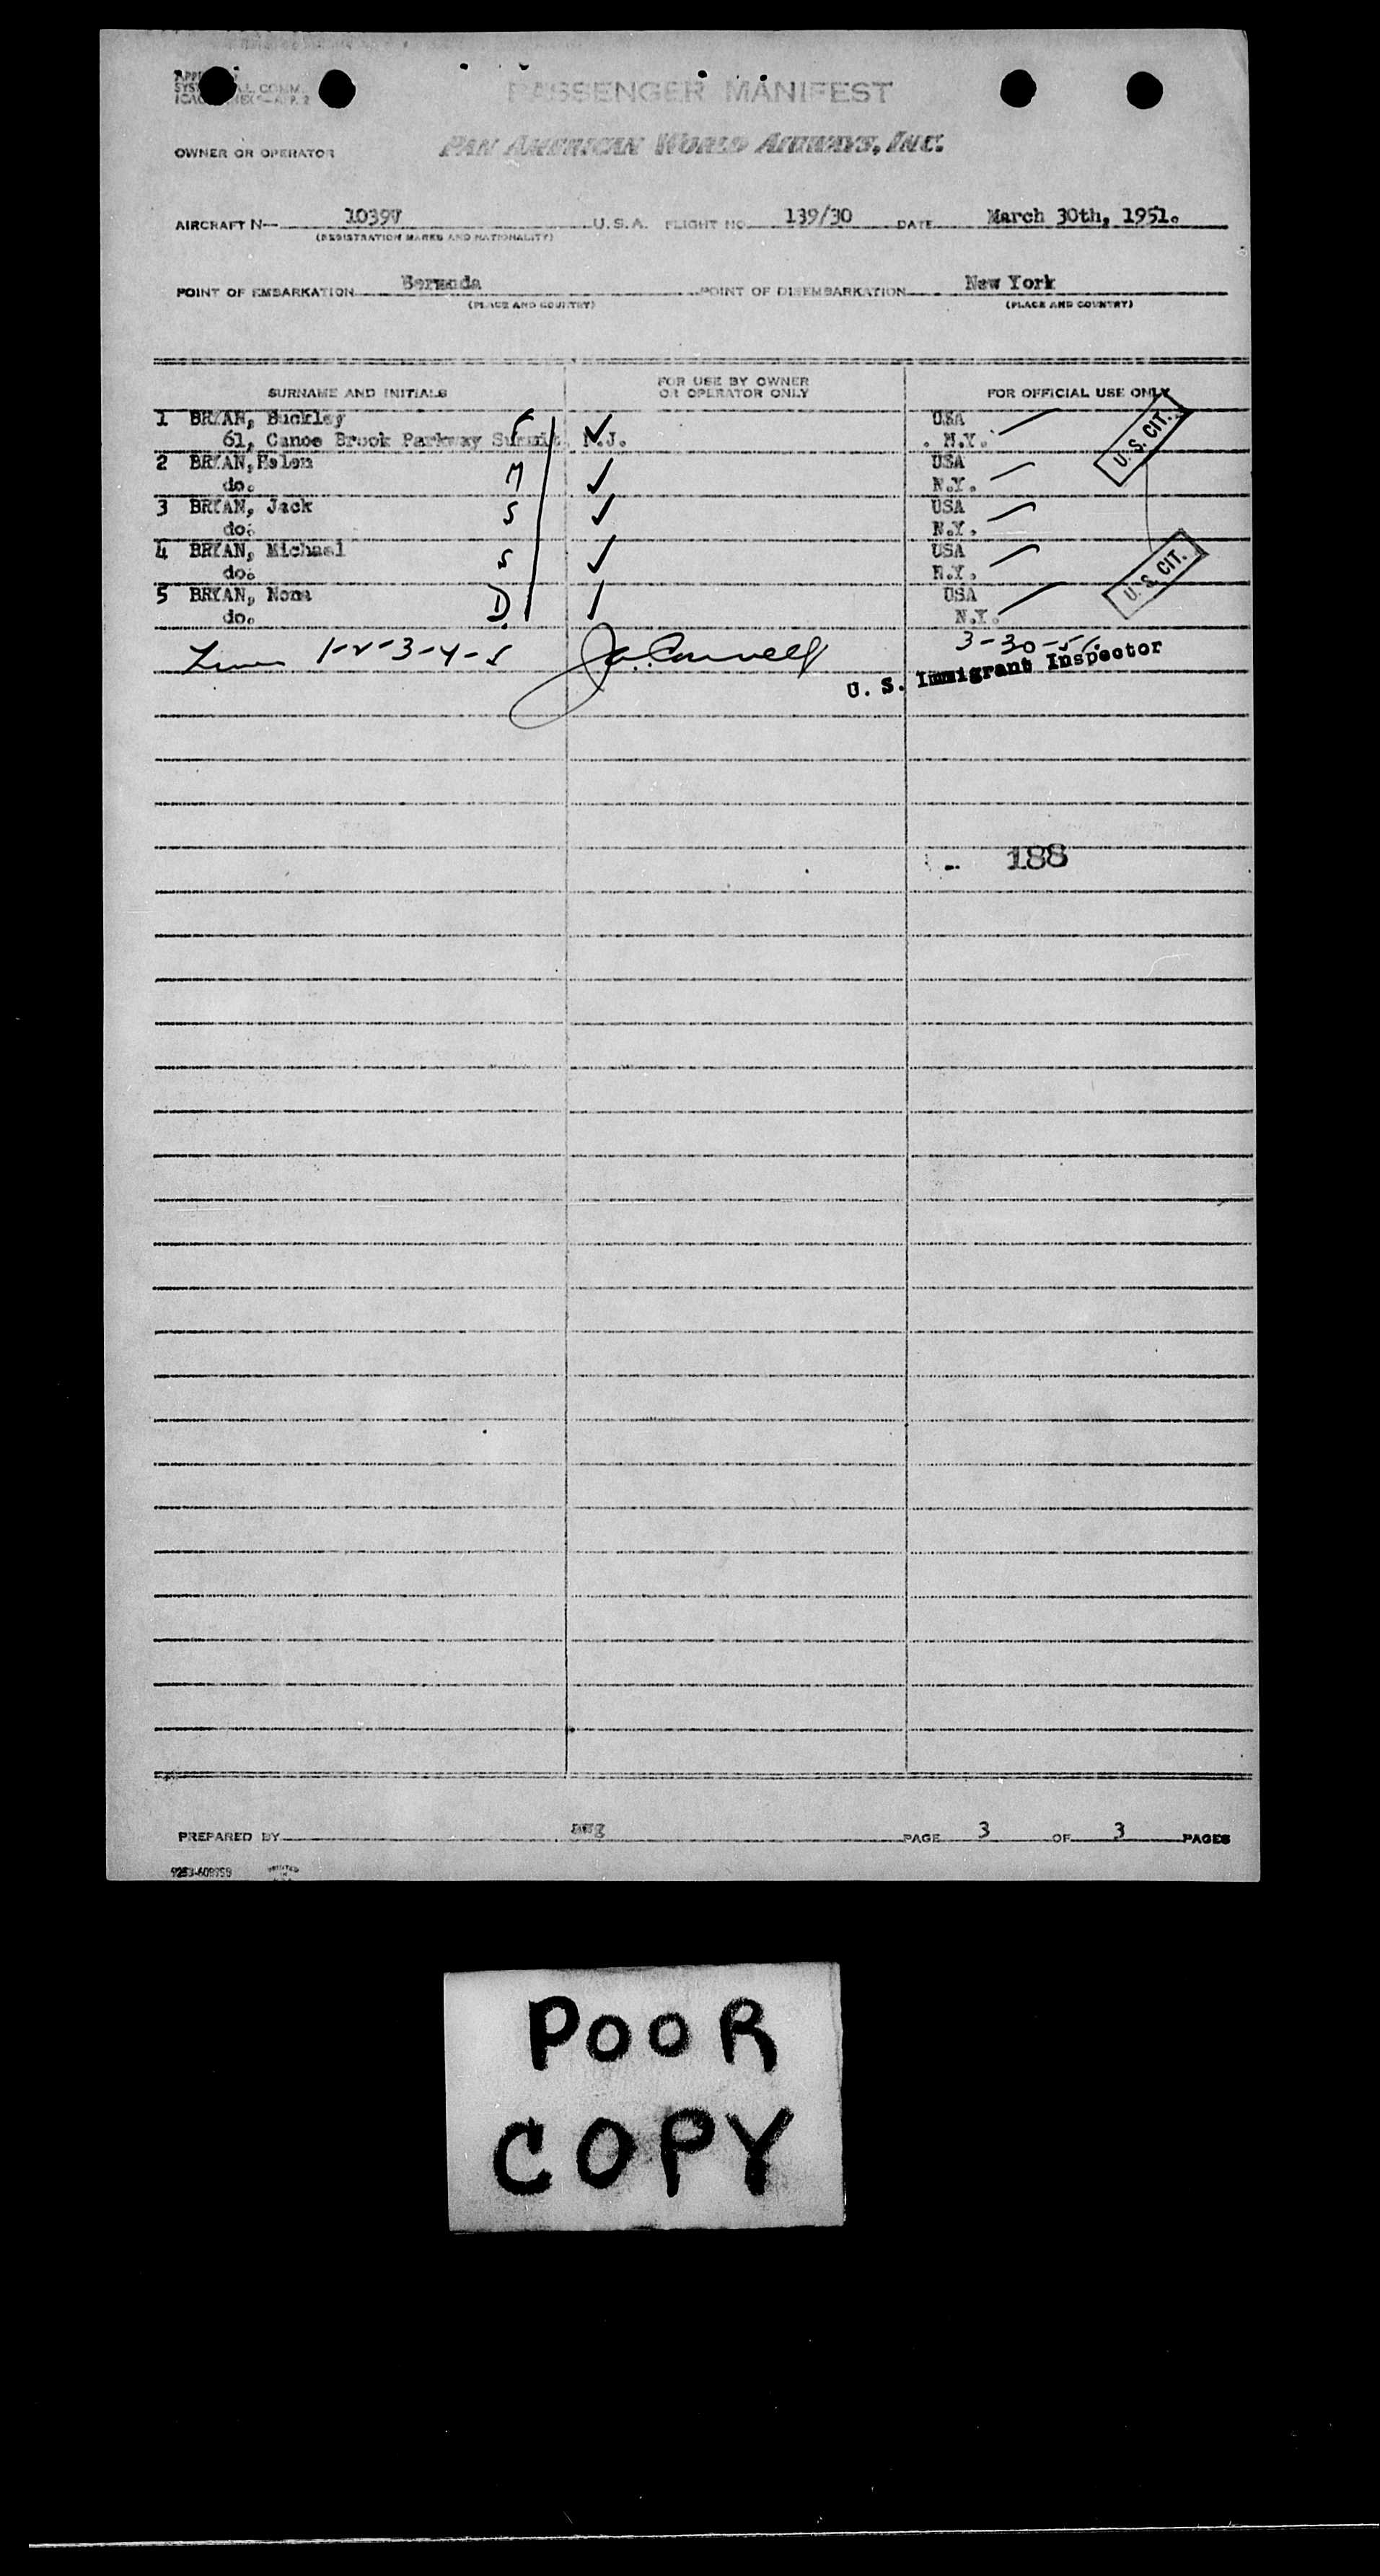 PASSENGER MANIFEST
OWNER OR OPERATOR PAN AMERICAN WORLD AIRWAYS, INC.
AIRCRAFT N— 1039V U.S.A. FLIGHT NO. 139/30 DATE March 30th, 1951.
(REGISTRATION MARKS AND NATIONALITY)
POINT OF EMBARKATION Bermuda POINT OF DISEMBARKATION New York
(PLACE AND COUNTRY) (PLACE AND COUNTRY)
SURNAME AND INITIALS FOR USE BY OWNER OR OPERATOR ONLY FOR OFFICIAL USE ONLY
1 BRYAN, Buckley F ✓ USA
61, Canoe Brook Parkway Summit N.J. . N.Y. U. S. CIT.
2 BRYAN, Helen USA
do. M ✓ N.Y.
3 BRYAN, Jack S ✓ USA
do. N.Y.
4 BRYAN, Michael S ✓ USA
do. N.Y. U. S. CIT.
5 BRYAN, Nona D USA
do. N.Y.
1-2-3-4-5 3-30-51
U. S. Immigrant Inspector
188
PREPARED BY PAGE 3 OF 3 PAGES
POOR
COPY